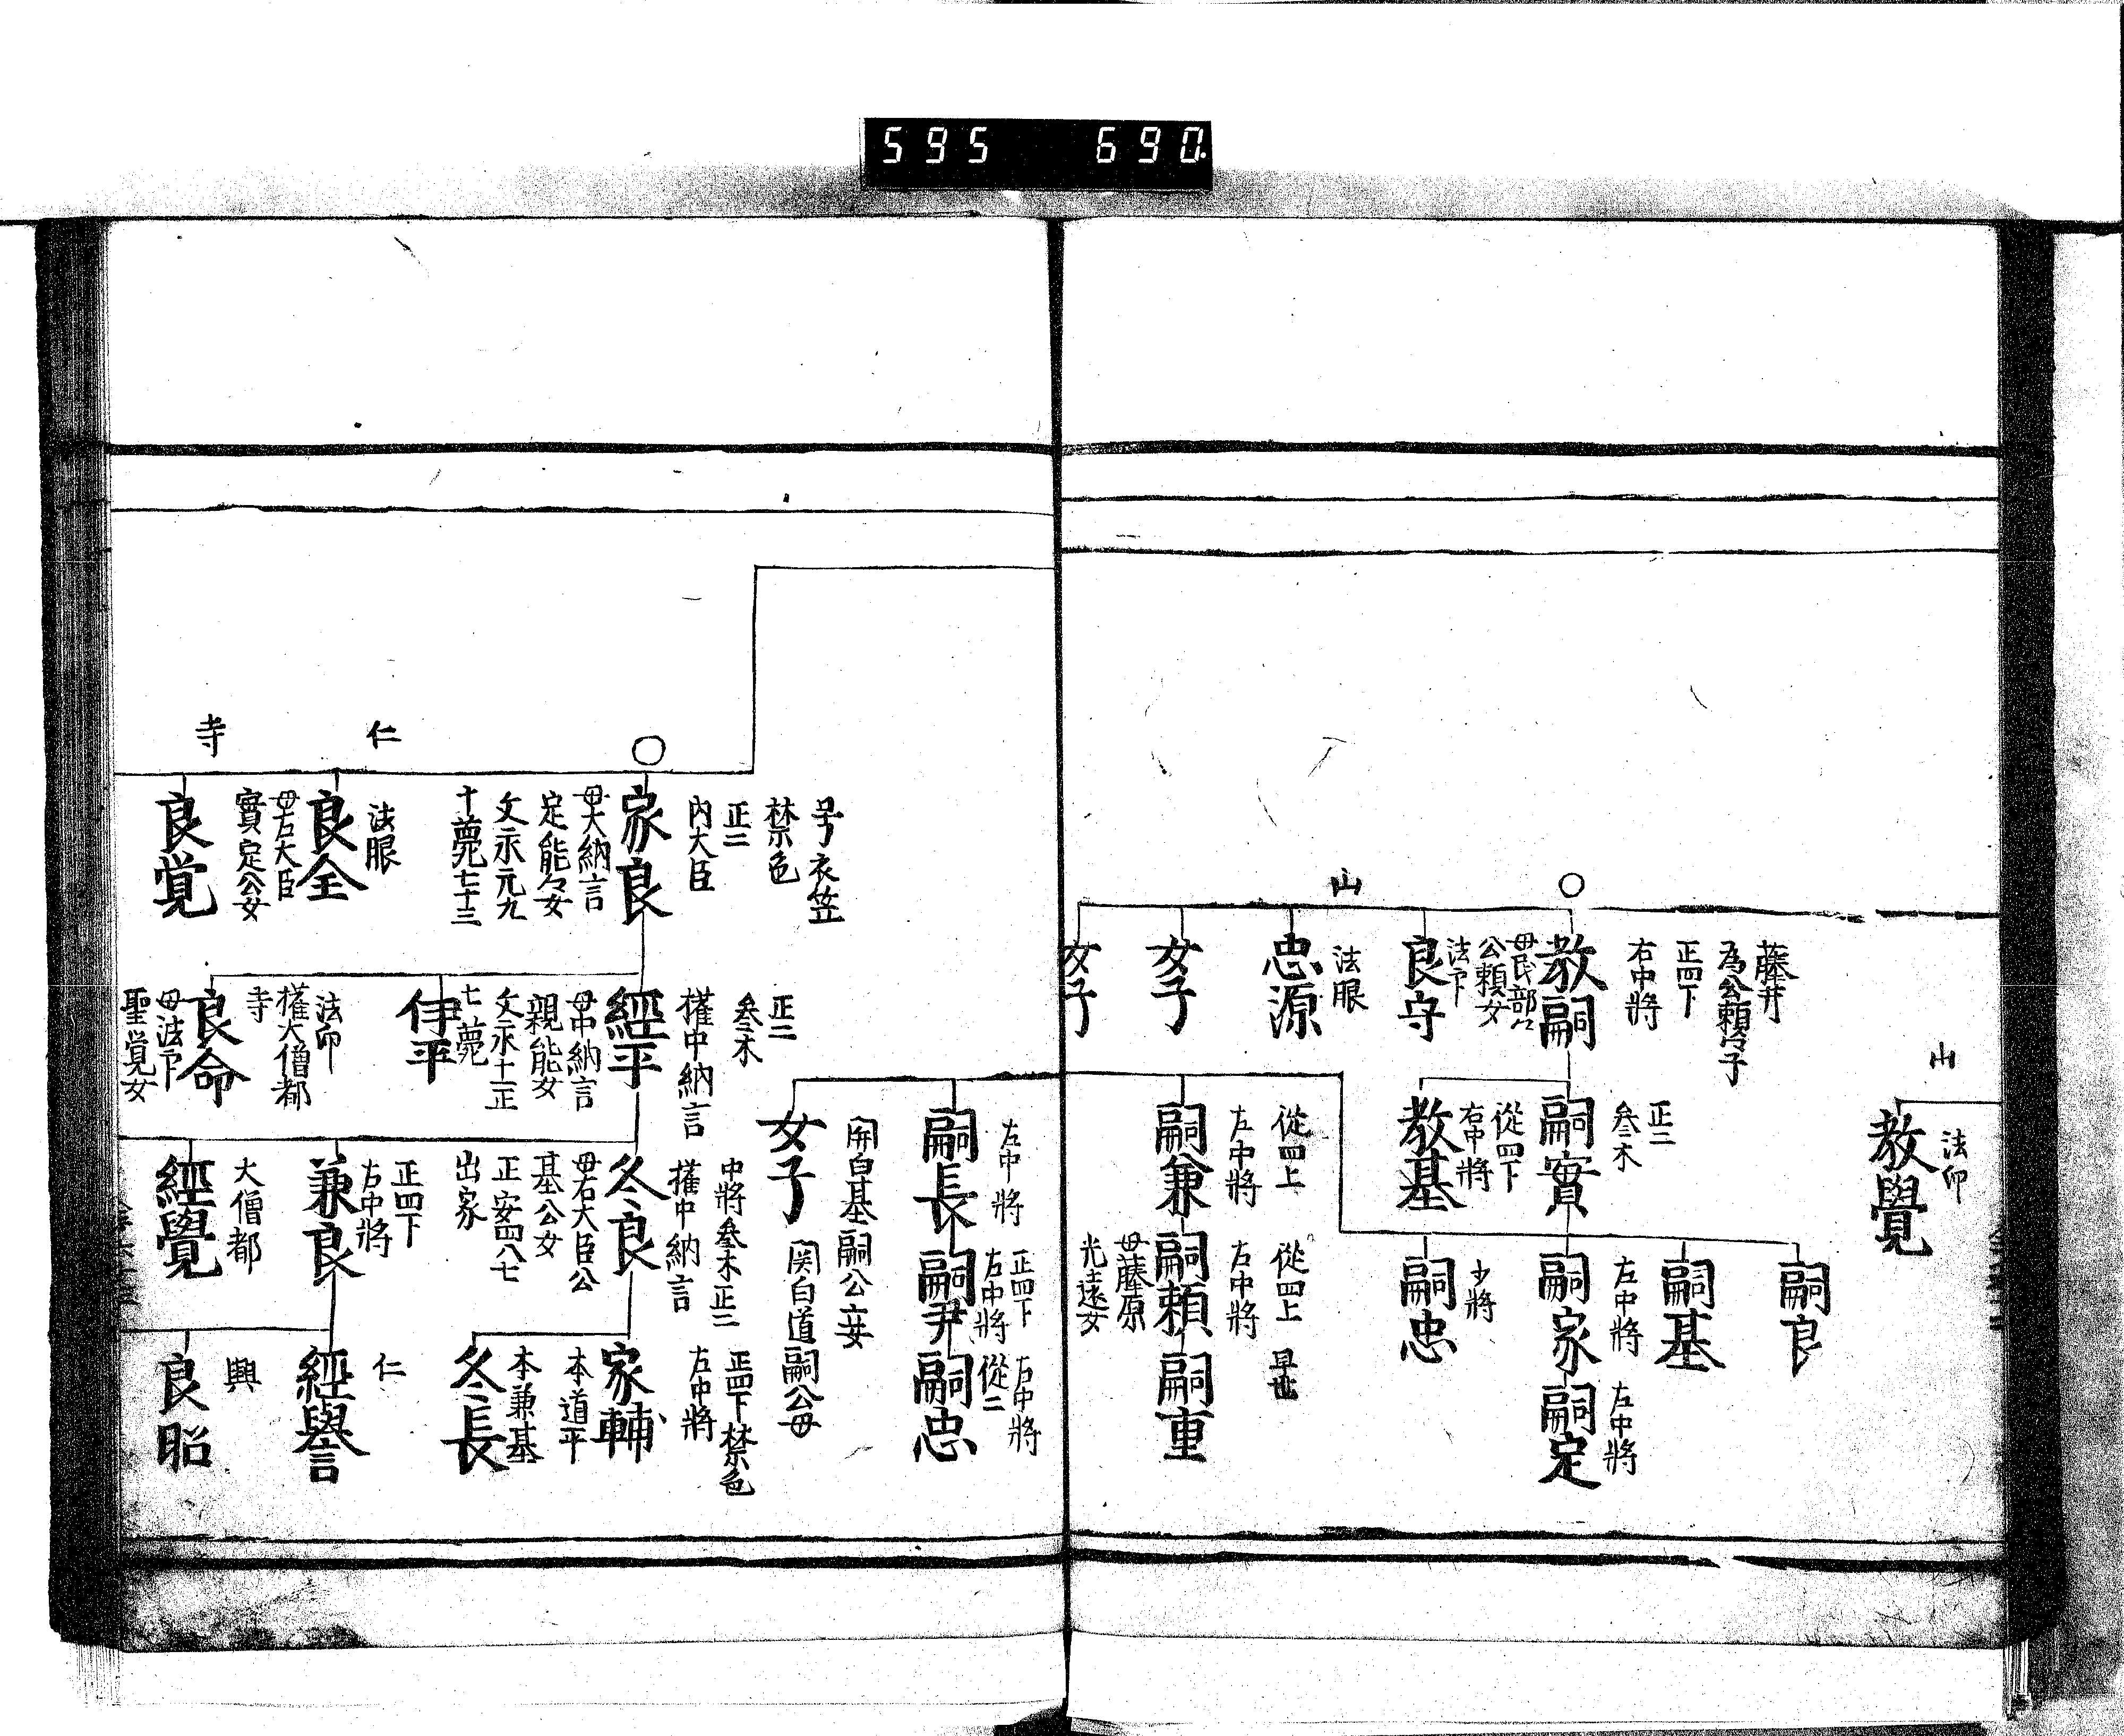 595 690.
山
法印
教覺
○
藤井
為公頼々子
正四下
右中將
教嗣
母民部公
公頼女
法下
良守
山
法眼
忠源
女子
女子
正二
叅木
嗣實
從四下
右中將
教基
嗣良
嗣基
左中將
嗣家
左中將
嗣定
少將
嗣忠
從四上
左中將
嗣兼
從四上
右中將
嗣頼
母藤原
光遠女
早世
嗣重
左中將
嗣長
正四下
右中將
嗣尹
右中將
從二
嗣忠
関白基嗣公妾
関白道嗣公母
女子
号衣笠
禁色
正二
內大臣
○
家良
母大納言
定能々女
文永元九
十薨七十三
仁
法眼
良全
母右大臣
實定公女
寺
良覚
正二
叅木
權中納言
經平
母中納言
親能女
文永十一正
七薨
伊平
法印
權大僧都
寺
良命
母法下
聖覚女
中將叅木正二
權中納言
冬良
母右大臣公
基公女
正安四八七
出家
正四下
右中將
兼良
大僧都
經覺
正四下禁色
右中將
家輔
本道平
本兼基
冬長
仁
經譽
興
良昭